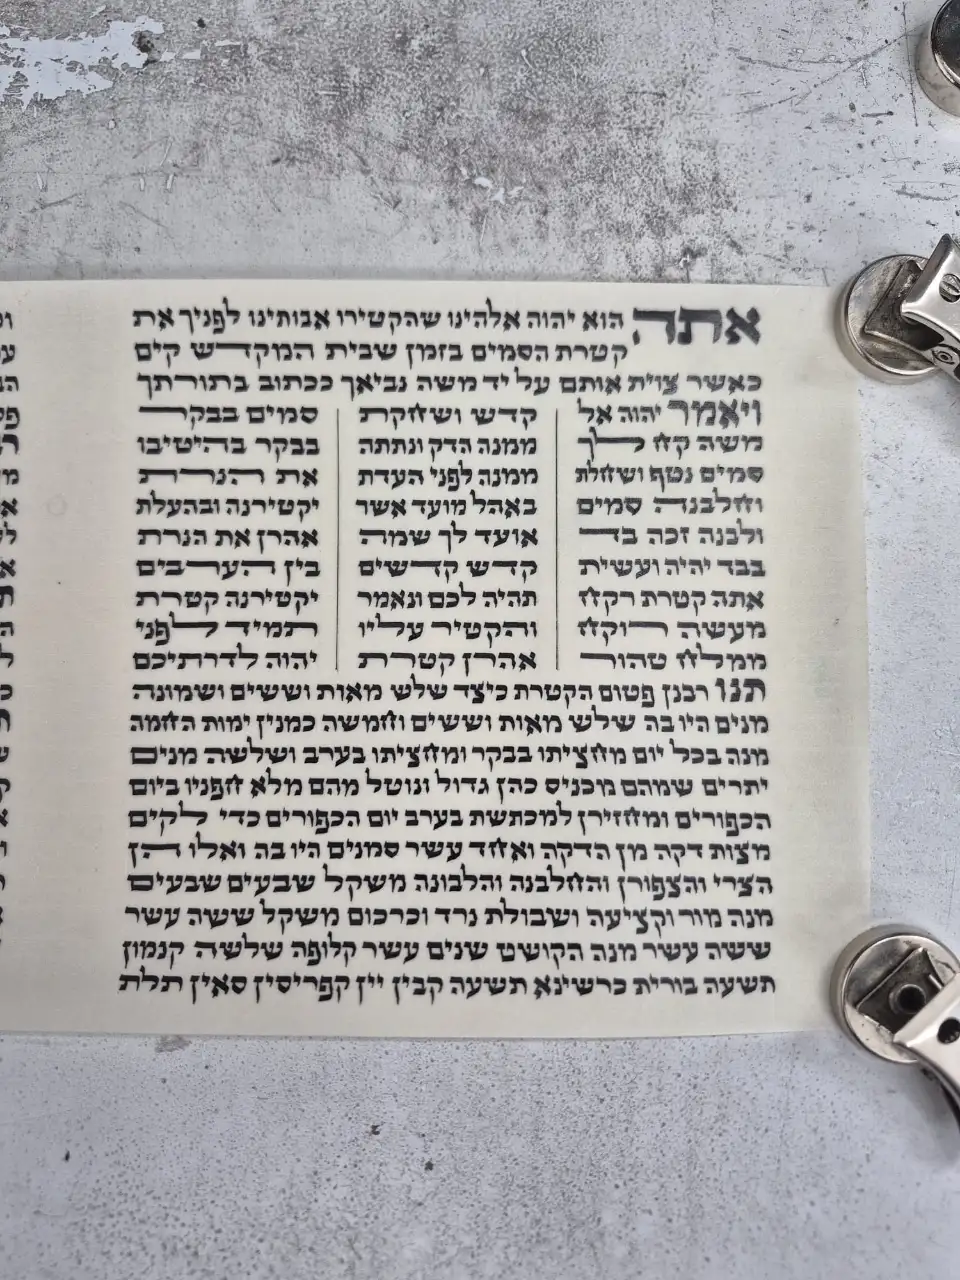 אתה הוא יהוה אלהינו שהקטירו אבותינו לפניך את
קטרת הסמים בזמן שבית המקדש קים
כאשר צוית אותם על יד משה נביאך ככתוב בתורתך
ויאמר יהוה אל
משה קח לך
סמים נטף ושחלת
וחלבנה סמים
ולבנה זכה בד
בבד יהיה ועשית
אתה קטרת רקח
מעשה רוקח
ממלח טהור
קדש ושחקת
ממנה הדק ונתתה
ממנה לפני העדת
באהל מועד אשר
אועד לך שמה
קדש קדשים
תהיה לכם ונאמר
והקטיר עליו
אהרן קטרת
סמים בבקר
בבקר בהיטיבו
את הנרת
יקטירנה ובהעלת
אהרן את הנרת
בין הערבים
יקטירנה קטרת
תמיד לפני
יהוה לדרתיכם
תנו רבנן פטום הקטרת כיצד שלש מאות וששים ושמונה
מנים היו בה שלש מאות וששים וחמשה כמנין ימות החמה
מנה בכל יום מחציתו בבקר ומחציתו בערב ושלשה מנים
יתרים שמהם מכניס כהן גדול ונוטל מהם מלא חפניו ביום
הכפורים ומחזירן למכתשת בערב יום הכפורים כדי לקים
מצות דקה מן הדקה ואחד עשר סמנים היו בה ואלו הן
הצרי והצפורן והחלבנה והלבונה משקל שבעים שבעים
מנה מור וקציעה ושבולת נרד וכרכום משקל ששה עשר
ששה עשר מנה הקושט שנים עשר קלופה שלשה קנמון
תשעה בורית כרשינא תשעה קבין יין קפריסין סאין תלת